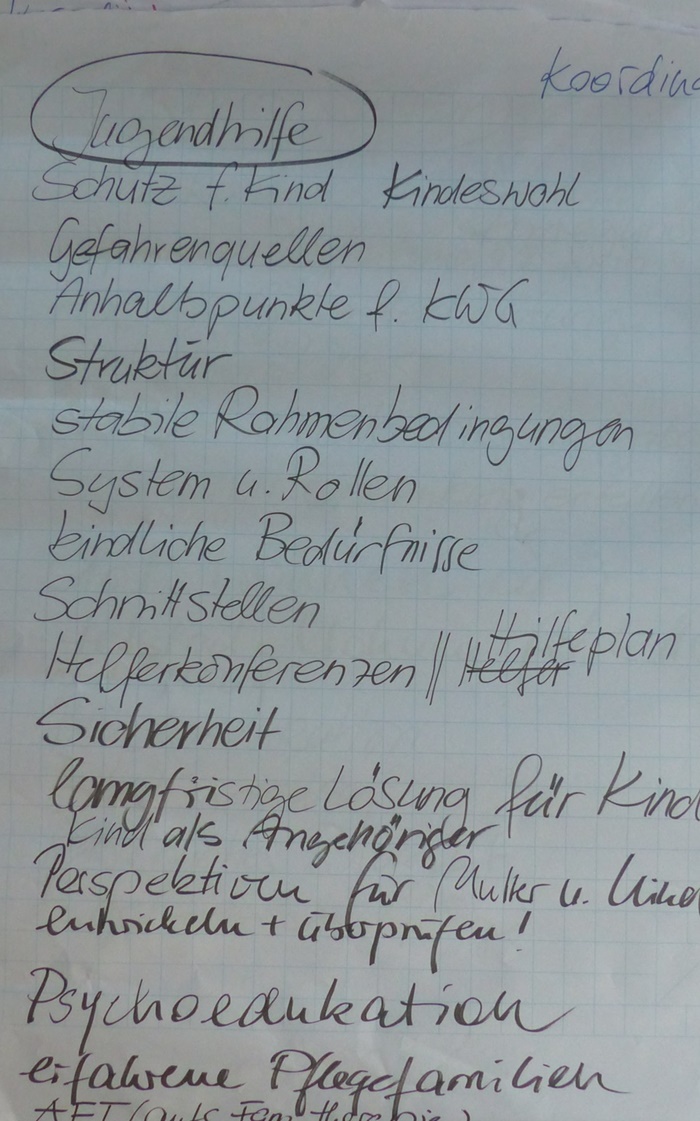 Koordina
Jugendhilfe
Schutz f. Kind Kindeswohl
Gefahrenquellen
Anhaltspunkte f. KWG
Struktur
stabile Rahmenbedingungen
System u. Rollen
kindliche Bedürfnisse
Schnittstellen
Helferkonferenzen || Helfer Hilfeplan
Sicherheit
langfristige Lösung für Kind
Kind als Angehöriger
Perspektiven für Mutter u. Kind
entwickeln + überprüfen!
Psychoedukation
erfahrene Pflegefamilien
AFT (aufs. Fam. therapie)